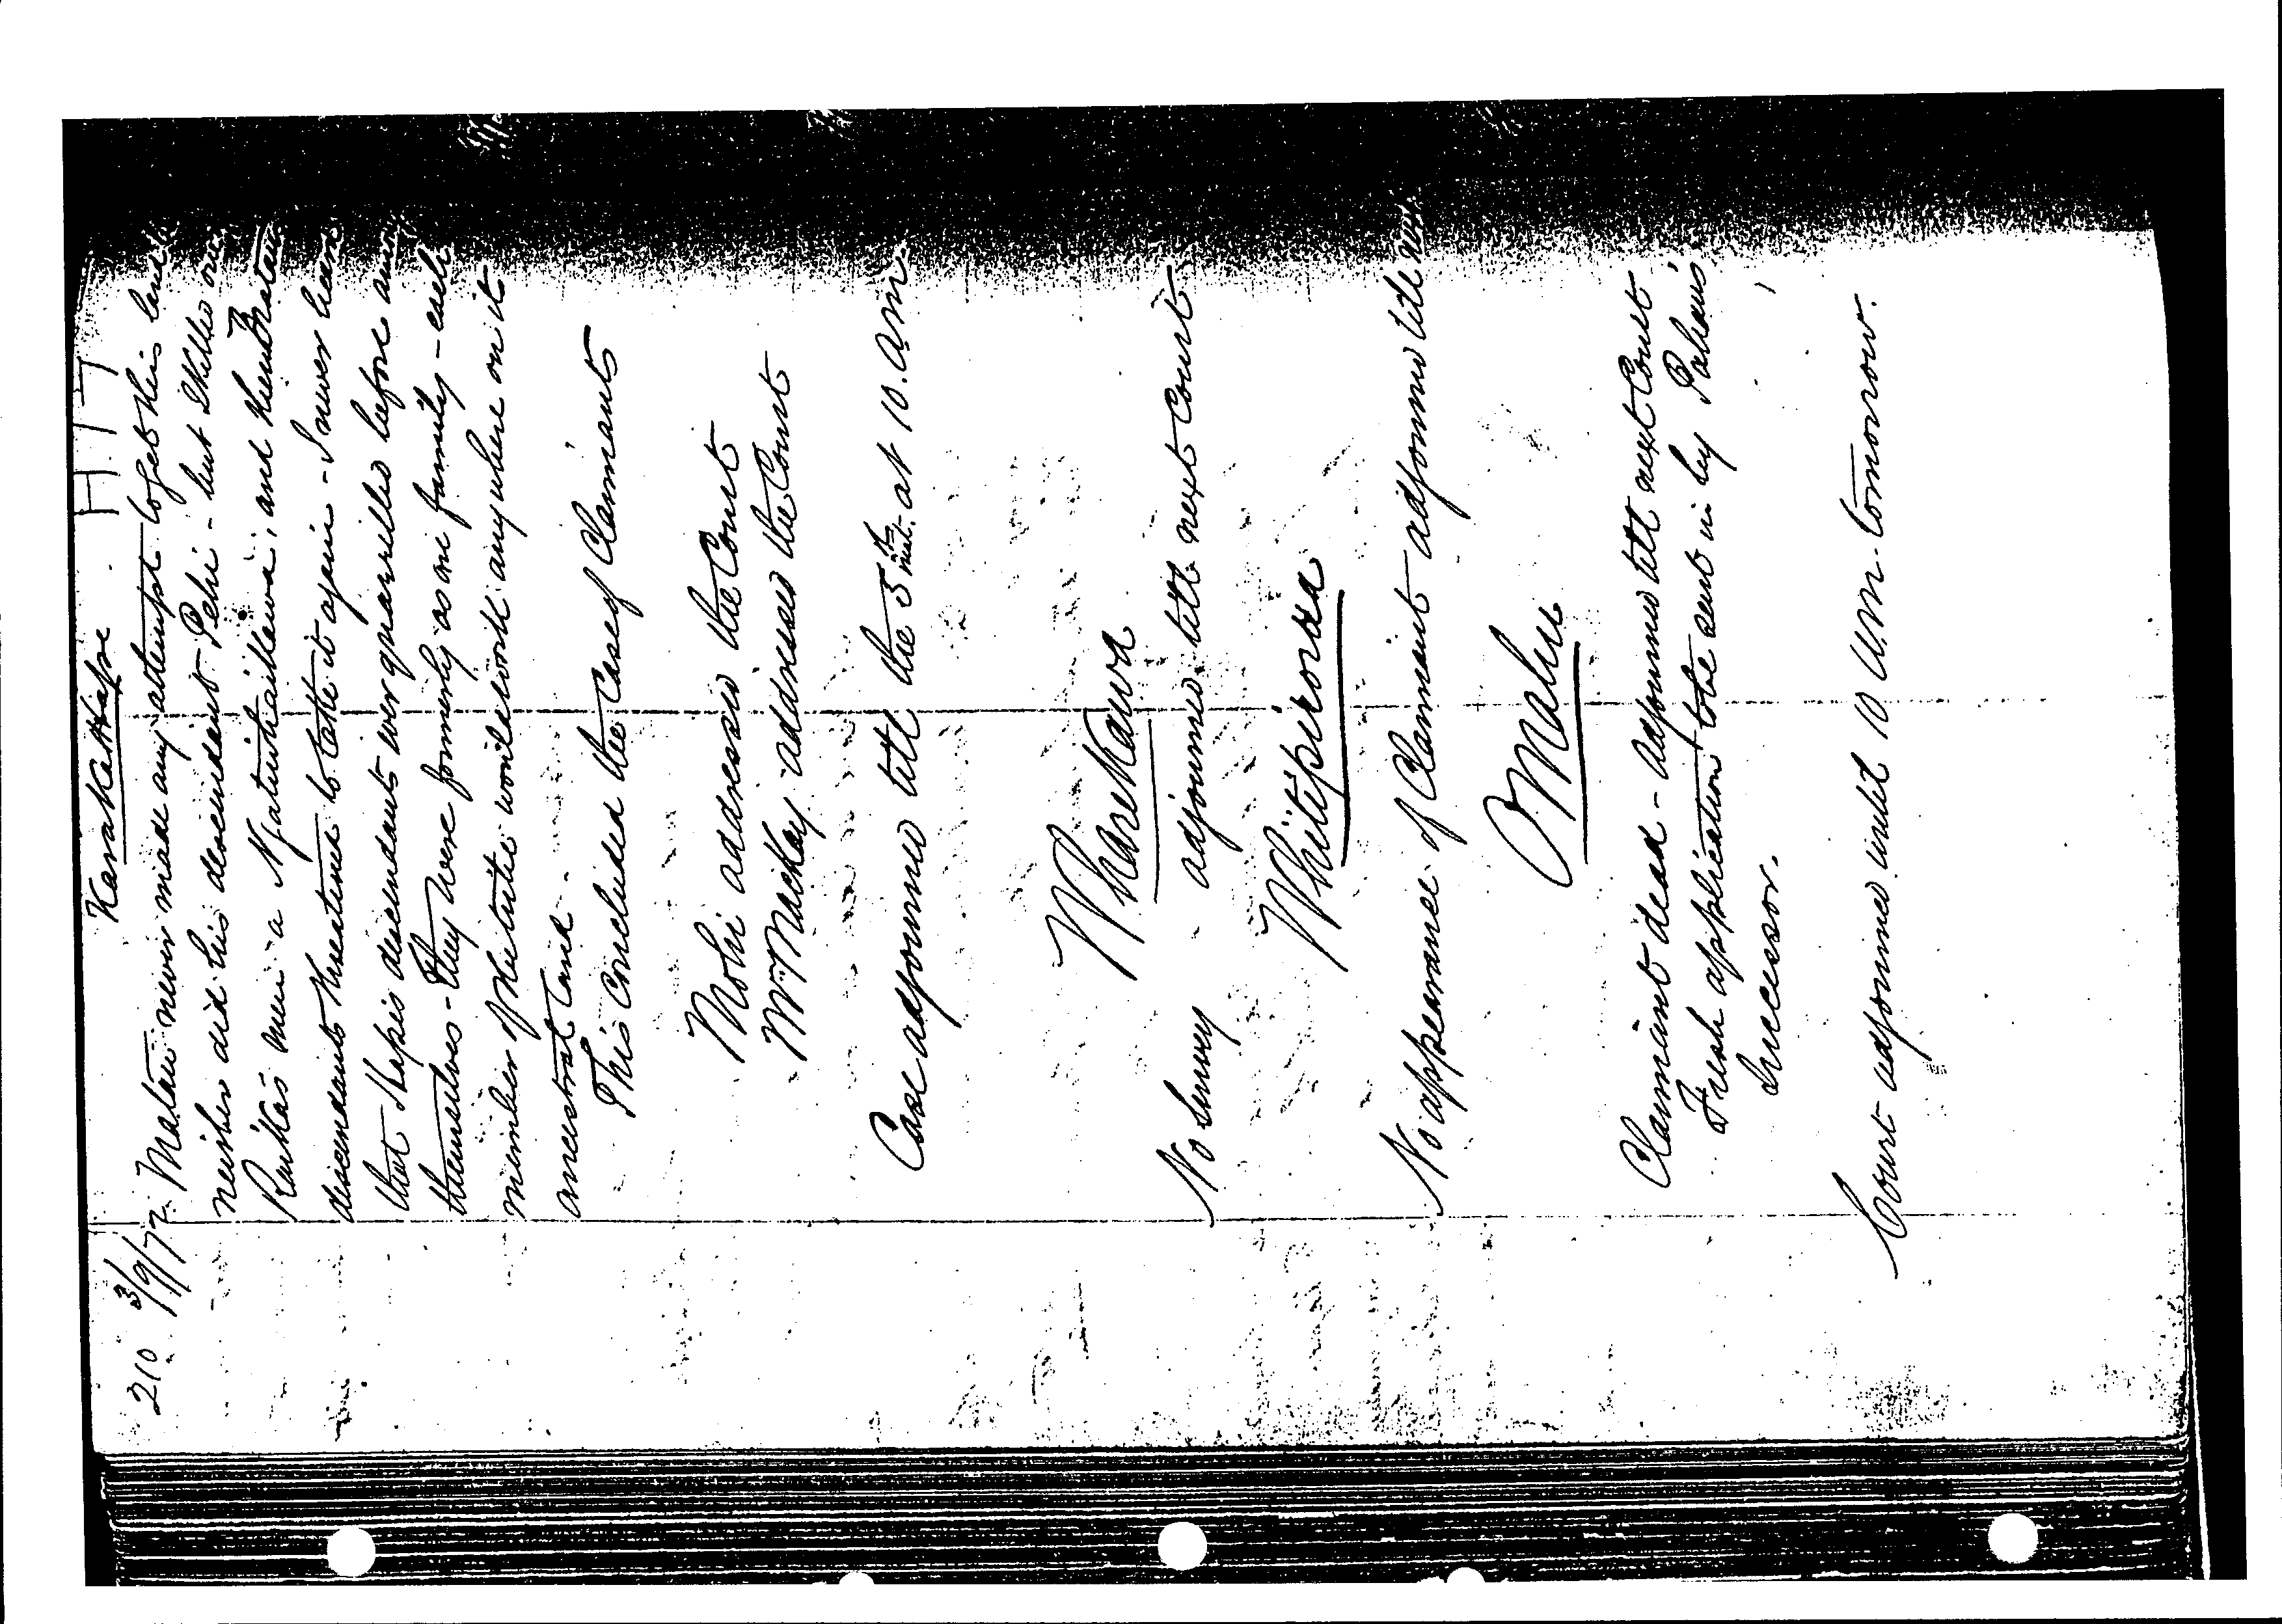 210 3/9/77
Matau never made any attempt to get this land
neither did his descendant Pehi - but I killed one
men a Ngatuturaitawa, and
descendants threatened to take it again - I never
that Hape's descendants ever quarrelled before
themselves - They were formerly as one family - each
member of the tribe would work any where on it
ancestral land -
This concluded the Case of Claimants
Mohi addressed the Court
Mr MacKay addressed the Court
Case adjourned till the 5th inst. at 10. am
Wharekawa
No Survey - adjourned till next Court
Whitipirorua
No appearance of Claimant adjourned till
Omahu
Claimant dead - adjourned till next Court
Fresh application to be sent in by
Successor.
Court adjourned until 10 a.m. tomorrow.